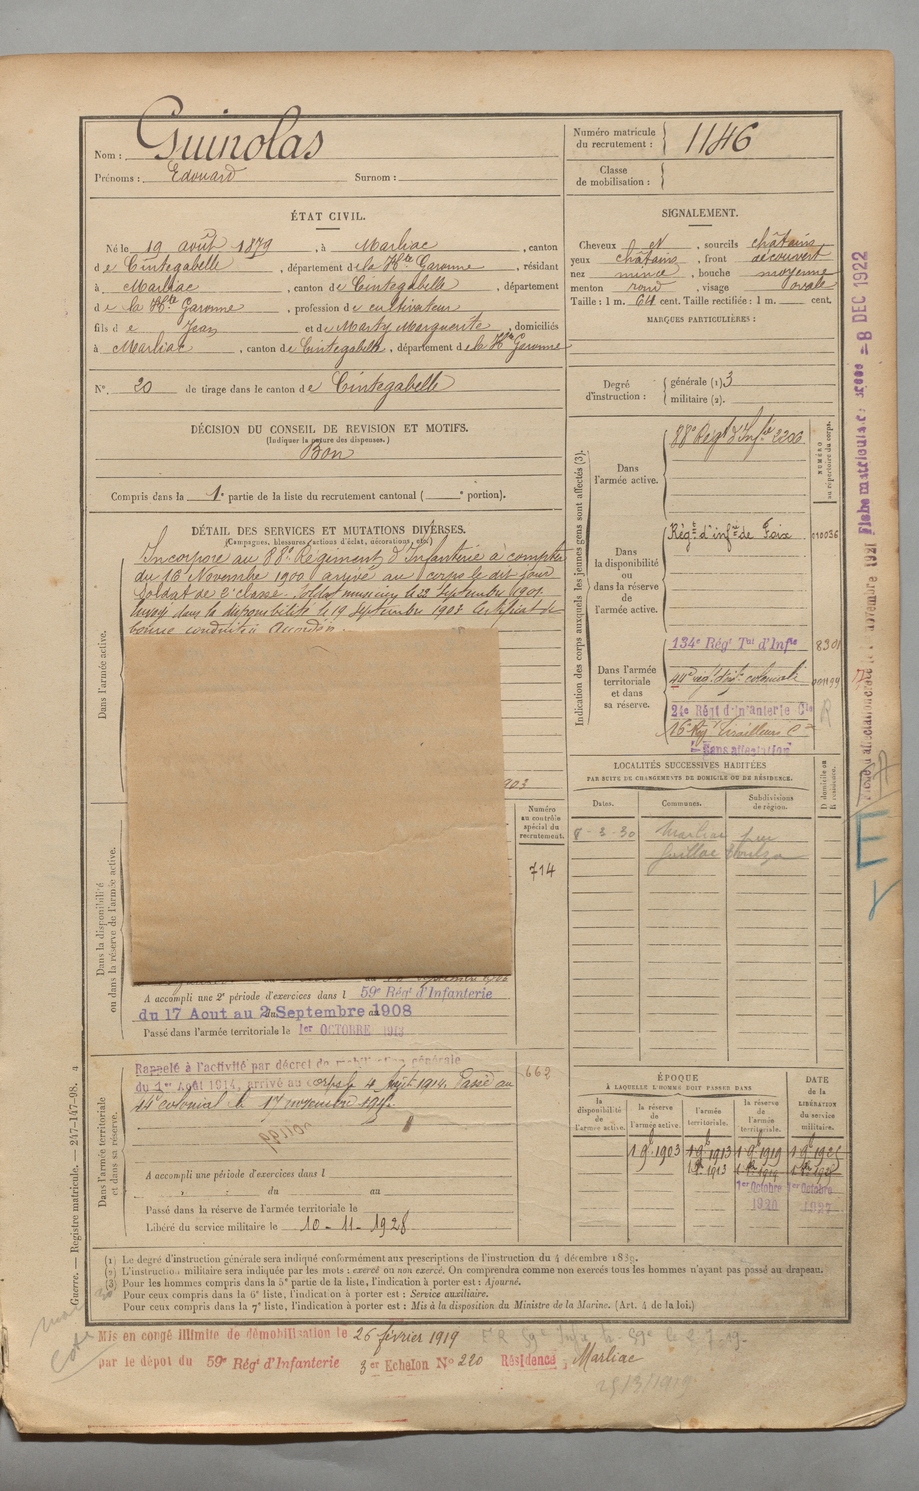 Nom : Guinolas
Prénoms : Edouard Surnom :
Numéro matricule du recrutement : 1146
Classe de mobilisation :
ÉTAT CIVIL.
Né le 19 août 1879, à Marliac, canton
de Cintegabelle, département de la Hte Garonne, résidant
à Marliac, canton de Cintegabelle, département
de la Hte Garonne, profession de cultivateur
fils de Jean et de Marty Marguerite, domiciliés
à Marliac, canton de Cintegabelle, département de la Hte Garonne
N°. 20 de tirage dans le canton de Cintegabelle
SIGNALEMENT.
Cheveux et, sourcils châtains
yeux châtains, front découvert
nez mince, bouche moyenne
menton rond, visage ovale
Taille : 1 m. 64 cent. Taille rectifiée : 1 m. cent.
MARQUES PARTICULIÈRES :
Degré d'instruction : générale (1) 3
militaire (2).
DÉCISION DU CONSEIL DE REVISION ET MOTIFS.
(Indiquer la nature des dispenses.)
Bon
Compris dans la 1e partie de la liste du recrutement cantonal ( e portion).
DÉTAIL DES SERVICES ET MUTATIONS DIVERSES.
(Campagnes, blessures, actions d'éclat, décorations, etc.)
Dans l'armée active.
Incorporé au 88e Régiment d'Infanterie à compter
du 16 Novembre 1900 arrivé au corps le dit jour
Soldat de 2e classe. Soldat musicien le 22 Septembre 1901.
Envoyé dans la disponibilité le 19 Septembre 1903 Certificat de
bonne conduite accordé.
903
Indication des corps auxquels les jeunes gens sont affectés (3).
NUMÉRO au répertoire du corps.
Dans l'armée active.
88e Régt d'Infie 2206
Dans la disponibilité ou dans la réserve de l'armée active.
Régt d'infie de Foix
Dans l'armée territoriale et dans sa réserve.
134e Régt Tal d'Infie 8301
44e rég. d'inf. coloniale
24e Régt d'infanterie Cle
16e Rég Tirailleurs
Sans affectation
LOCALITÉS SUCCESSIVES HABITÉES
PAR SUITE DE CHANGEMENTS DE DOMICILE OU DE RÉSIDENCE.
Dates. Communes. Subdivisions de région. D domicile ou R résidence.
8-3-30 Marliac par
Dans la disponibilité ou dans la réserve de l'armée active.
Numéro au contrôle spécial du recrutement.
714
A accompli une 2e période d'exercices dans l 59e Régt d'Infanterie
du 17 Aout au 2 Septembre 1908
Passé dans l'armée territoriale le 1er OCTOBRE 1913
Dans l'armée territoriale et dans sa réserve.
Rappelé à l'activité par décret de mobilisation générale
du 1er Août 1914, arrivé au corps le 4 Août 1914. Passé au
44e colonial le 17 novembre
662
A accompli une période d'exercices dans l
du au
Passé dans la réserve de l'armée territoriale le
Libéré du service militaire le 10-11-1928
ÉPOQUE
À LAQUELLE L'HOMME DOIT PASSER DANS
la disponibilité de l'armée active. la réserve de l'armée active. l'armée territoriale. la réserve de l'armée territoriale. DATE de la LIBÉRATION du service militaire.
1 9b 1903 1 9b 1913 1 9b 1919
1er Octobre 1920 1er Octobre 1927
(1) Le degré d'instruction générale sera indiqué conformément aux prescriptions de l'instruction du 4 décembre 1889.
(2) L'instruction militaire sera indiquée par les mots : exercé ou non exercé. On comprendra comme non exercés tous les hommes n'ayant pas passé au drapeau.
(3) Pour les hommes compris dans la 5e partie de la liste, l'indication à porter est : Ajourné.
Pour ceux compris dans la 6e liste, l'indication à porter est : Service auxiliaire.
Pour ceux compris dans la 7e liste, l'indication à porter est : Mis à la disposition du Ministre de la Marine. (Art. 4 de la loi.)
Mis en congé illimité de démobilisation le 26 février 1919
par le dépot du 59e Régt d'Infanterie 3er Echelon No 220 Résidence, Marliac
25/3/1919
Guerre. — Registre matricule. — 247-147-98.
8 DEC 1922